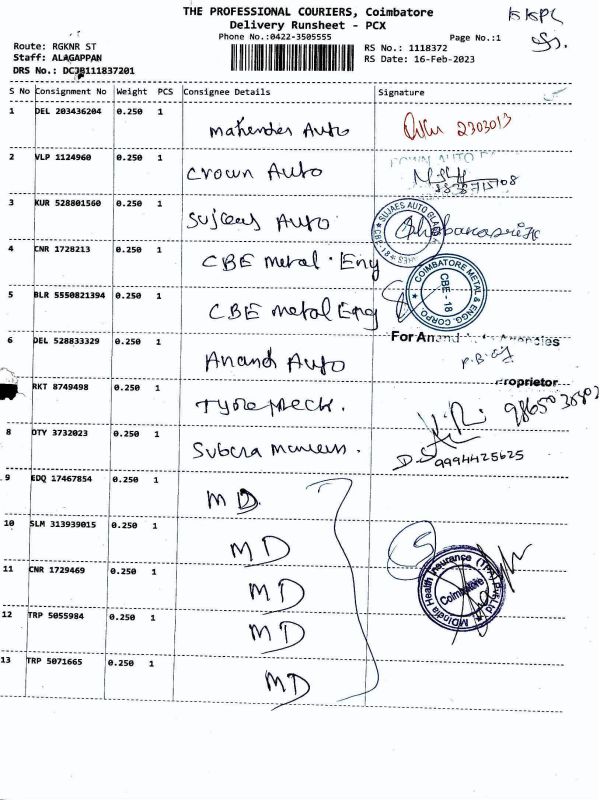 THE PROFESSIONAL COURIERS, Coimbatore
Delivery Runsheet - PCX
Phone No.:0422-3505555
Page No.:1
KKPL
Route: RGKNR ST
RS No.: 1118372
Staff: ALAGAPPAN
RS Date: 16-Feb-2023
DRS No.: DCJB111837201
S No Consignment No Weight PCS Consignee Details Signature
1 DEL 203436204 0.250 1 Mahender Auto 2303013
2 VLP 1124960 0.250 1 Crown Auto
3 KUR 528801560 0.250 1 Sujees Auto Shobanapriya
SUJAES AUTO GLASS
CBE-18
4 CNR 1728213 0.250 1 CBE Metal. Eng
COIMBATORE METAL & ENGG. CORPO
CBE - 18
5 BLR 5550821394 0.250 1 CBE metal Eng
For Anand Agencies
6 DEL 528833329 0.250 1 Anand Auto
Proprietor
RKT 8749498 0.250 1
8 DTY 3732023 0.250 1 9994425625
9 EDQ 17467854 0.250 1 MD.
10 SLM 313939015 0.250 1 MD
11 CNR 1729469 0.250 1 MD
MDIndia Health Insurance (TPA) Pvt.Ltd
Coimbatore
12 TRP 5055984 0.250 1 MD
13 TRP 5071665 0.250 1 MD